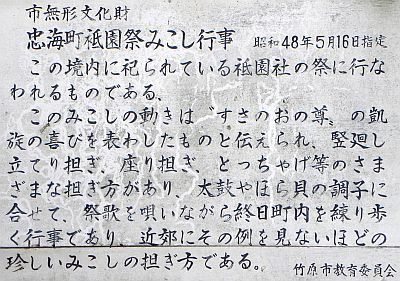 市無形文化財
忠海町祇園祭みこし行事 昭和48年5月16日指定
この境内に祀られている祇園社の祭に行な
われるものである、
このみこしの動きは〝すさのおの尊〟の凱
旋の喜びを表わしたものと伝えられ、竪廻し
立てり担ぎ、座り担ぎ、とっちゃげ等のさま
ざまな担ぎ方があり、太鼓やほら貝の調子に
合せて、祭歌を唄いながら終日町内を練り歩
く行事であり、近郊にその例を見ないほどの
珍しいみこしの担ぎ方である。 竹原市教育委員会